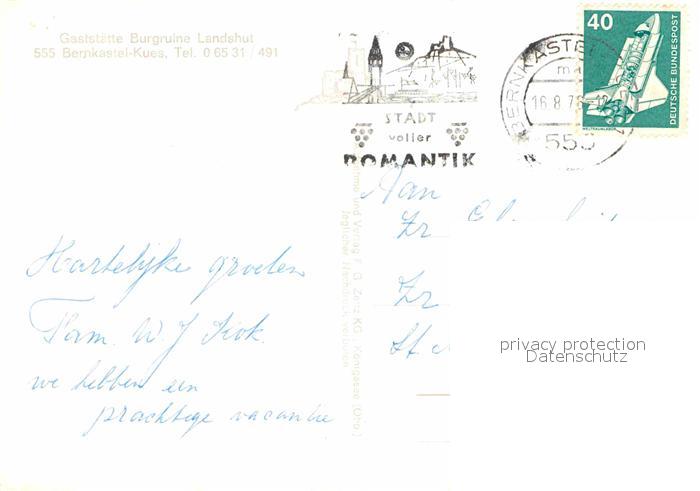 Gaststätte Burgruine Landshut
555 Bernkastel-Kues, Tel. 0 65 31 / 491
STADT
voller
ROMANTIK
BERNKASTEL
16.8.7
555
40
DEUTSCHE BUNDESPOST
WELTRAUMLABOR
Aan
Zr
Zr
St
Hartelijke groeten
Fam. W. J.
we hebben een
prachtige vacantie
und Verlag F. G. Zenz KG., Königssee (Obb.)
Jeglicher Nachdruck verboten
privacy protection
Datenschutz